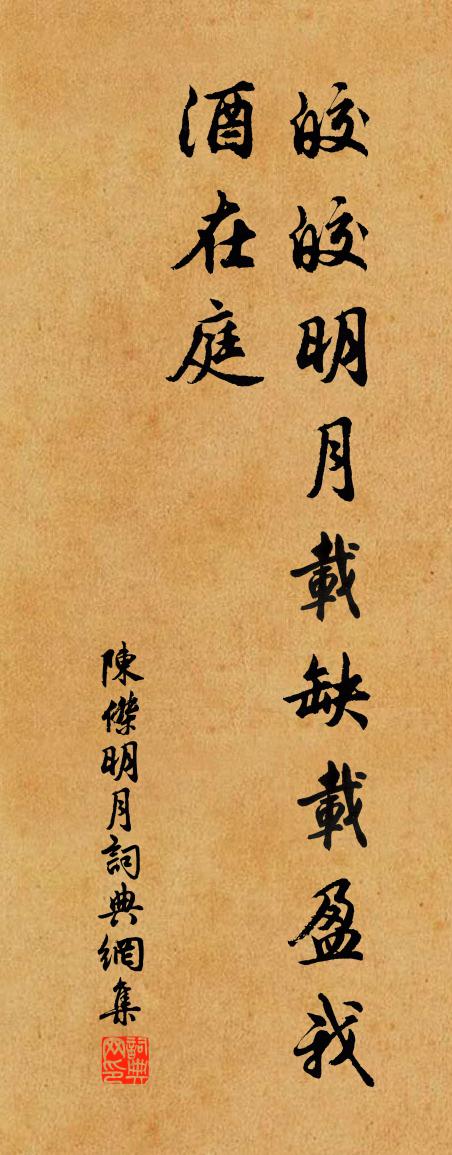 皎皎明月載缺載盈我
酒在庭
陳傑明月詞典網集
詞典网印